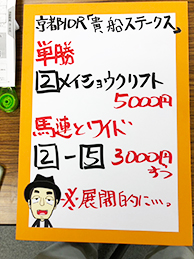 京都10R「貴船ステークス」
単勝
2 メイショウクリフト
5000円
馬連とワイド
2-5 3000円
ずつ
※展開的に…。